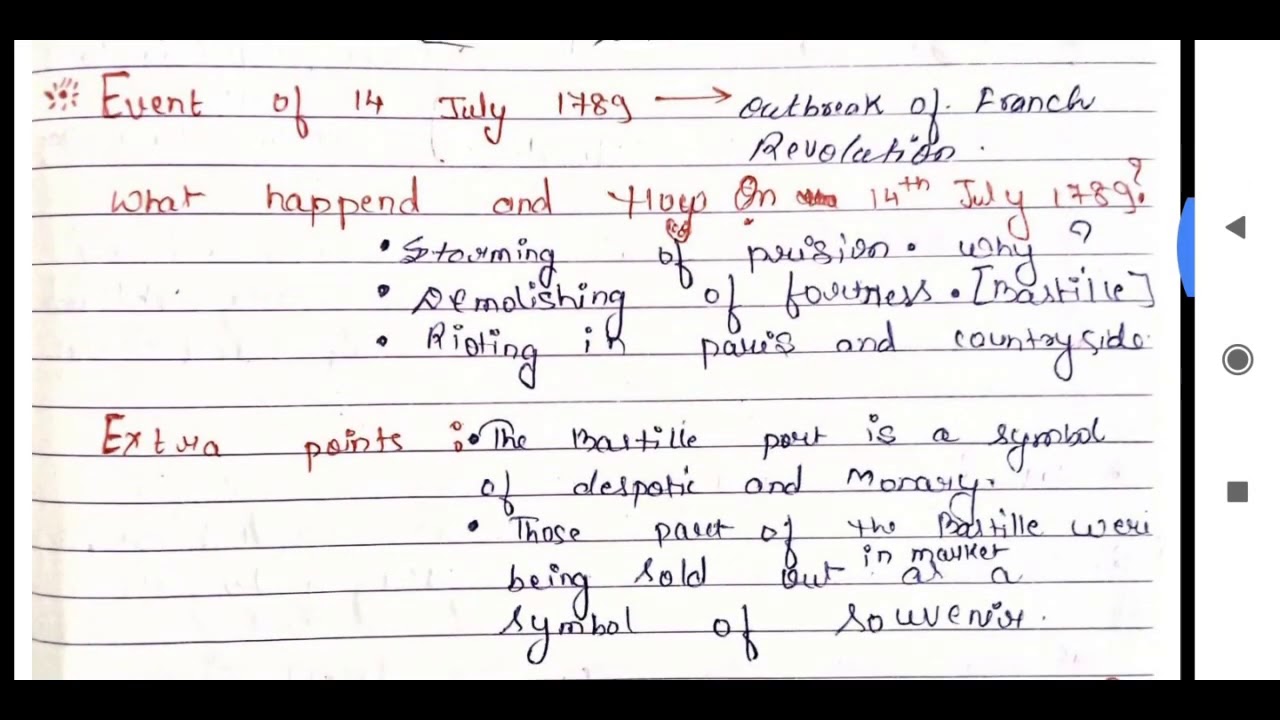 Event of 14 July 1789 → Outbreak of Franch
Revolution.
What happend and How On 14th July 1789?
• Storming of prision. why ?
• Demolishing of fourtness. [Bastille]
• Rioting in paris and countryside.
Extra points : • The Bastille port is a symbol
of despotic and Monary.
• Those part of the Bastille were
in market
being sold out as a
symbol of souvenir.